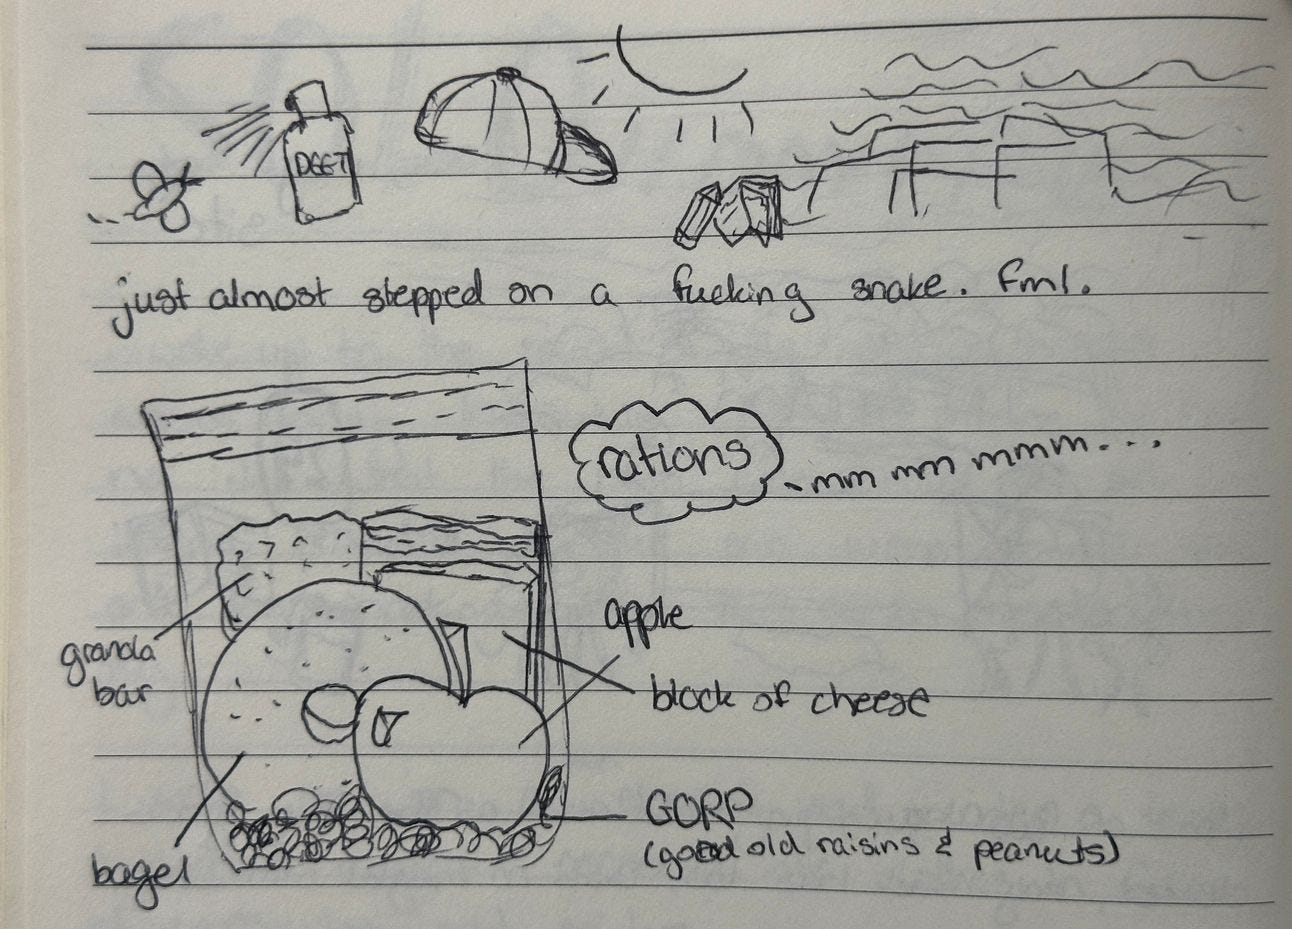 DEET
just almost stepped on a fucking snake. fml.
rations
mm mm mmm...
granola
bar
apple
block of cheese
GORP
(good old raisins & peanuts)
bagel